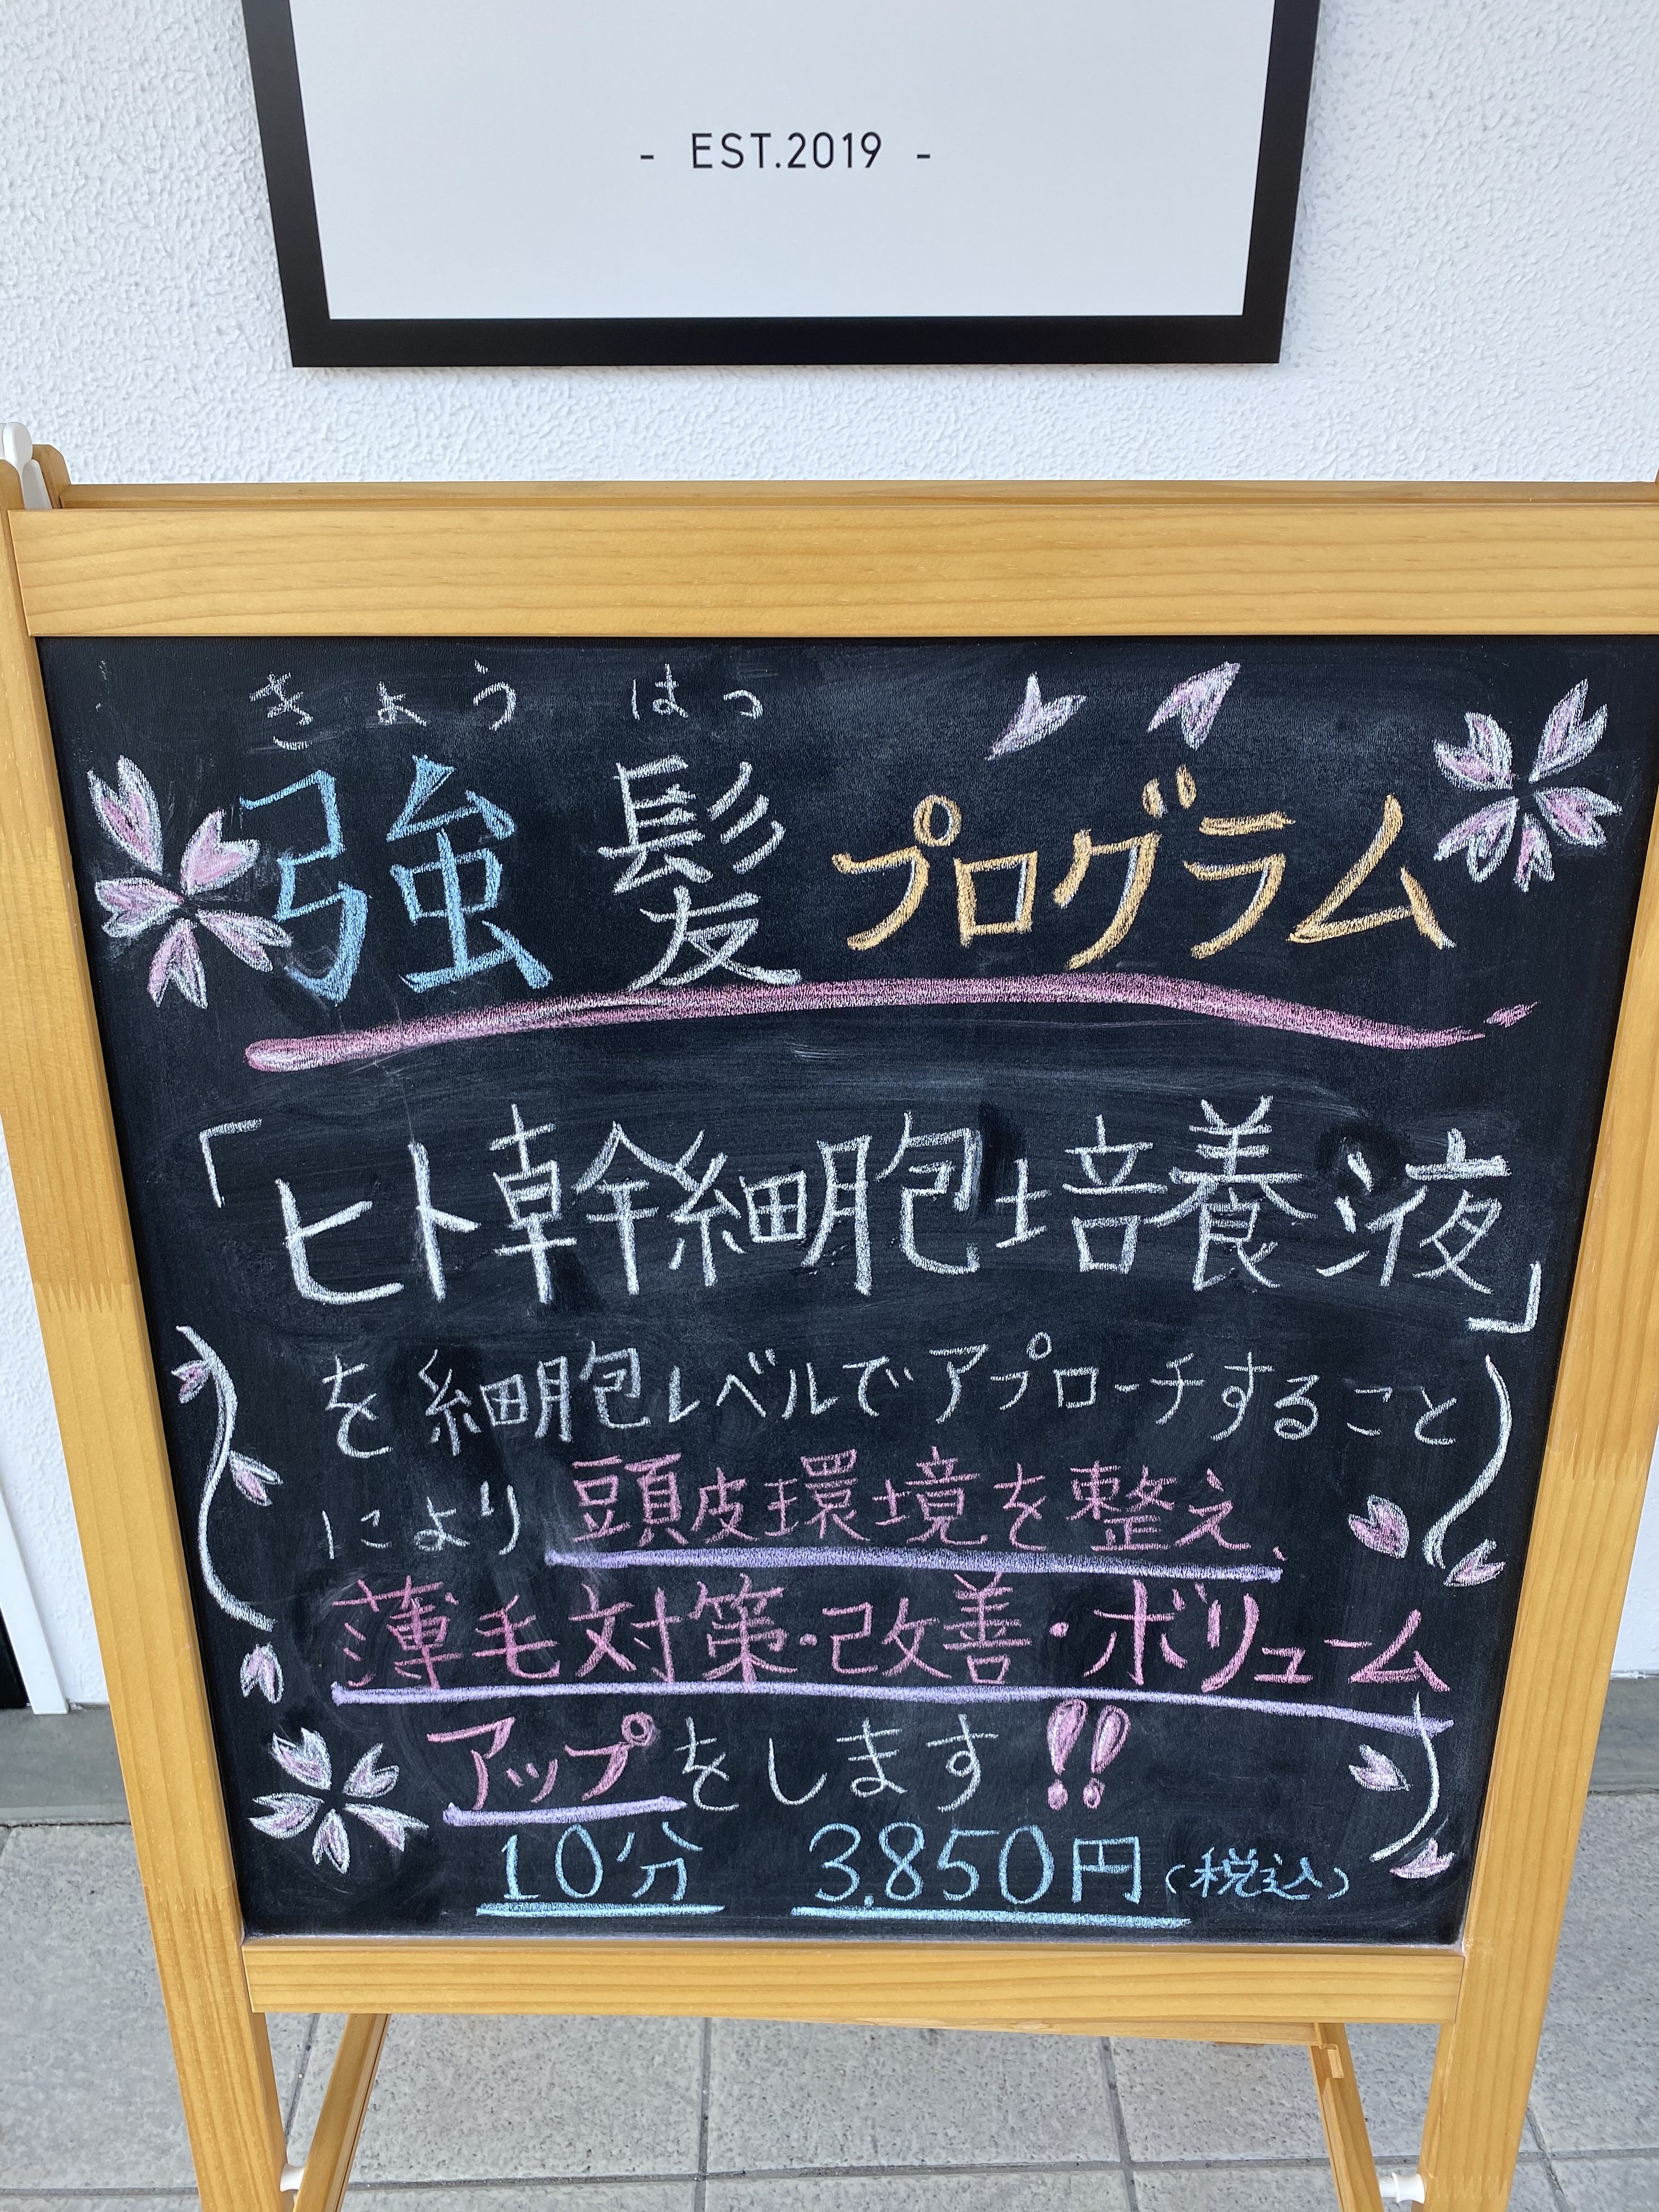 - EST.2019 -
きょう はつ
強髪プログラム
「ヒト幹細胞培養液」
を細胞レベルでアプローチすること
により頭皮環境を整え、
薄毛対策・改善・ボリューム
アップをします!!
10分 3,850円(税込)